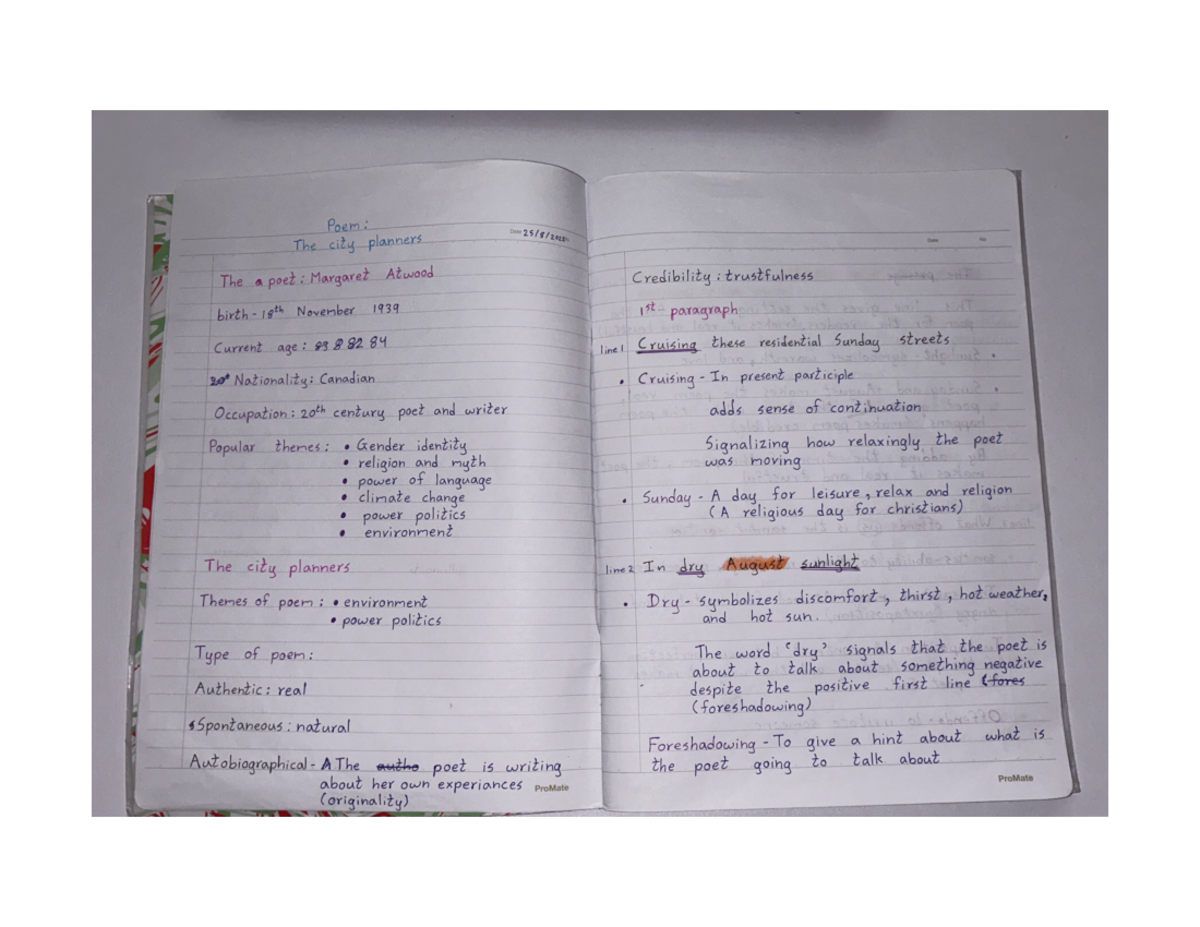 Poem:
The city planners
Date 25/8/2023
The a poet: Margaret Atwood
birth - 18th November 1939
Current age: 83 8 82 84
20th Nationality: Canadian
Occupation: 20th century poet and writer
Popular themes: • Gender identity
• religion and myth
• power of language
• climate change
• power politics
• environment
The city planners
Themes of poem: • environment
• power politics
Type of poem:
Authentic: real
Spontaneous: natural
Autobiographical - A The autho poet is writing
about her own experiances
(originality)
ProMate
Date No
Credibility: trustfulness
1st paragraph
line 1 Cruising these residential Sunday streets
• Cruising - In present participle
adds sense of continuation
Signalizing how relaxingly the poet
was moving
• Sunday - A day for leisure, relax and religion
(A religious day for christians)
line 2 In dry August sunlight
• Dry - symbolizes discomfort, thirst, hot weather,
and hot sun.
The word 'dry' signals that the poet is
about to talk about something negative
despite the positive first line (fores
(foreshadowing)
Foreshadowing - To give a hint about what is
the poet going to talk about
ProMate